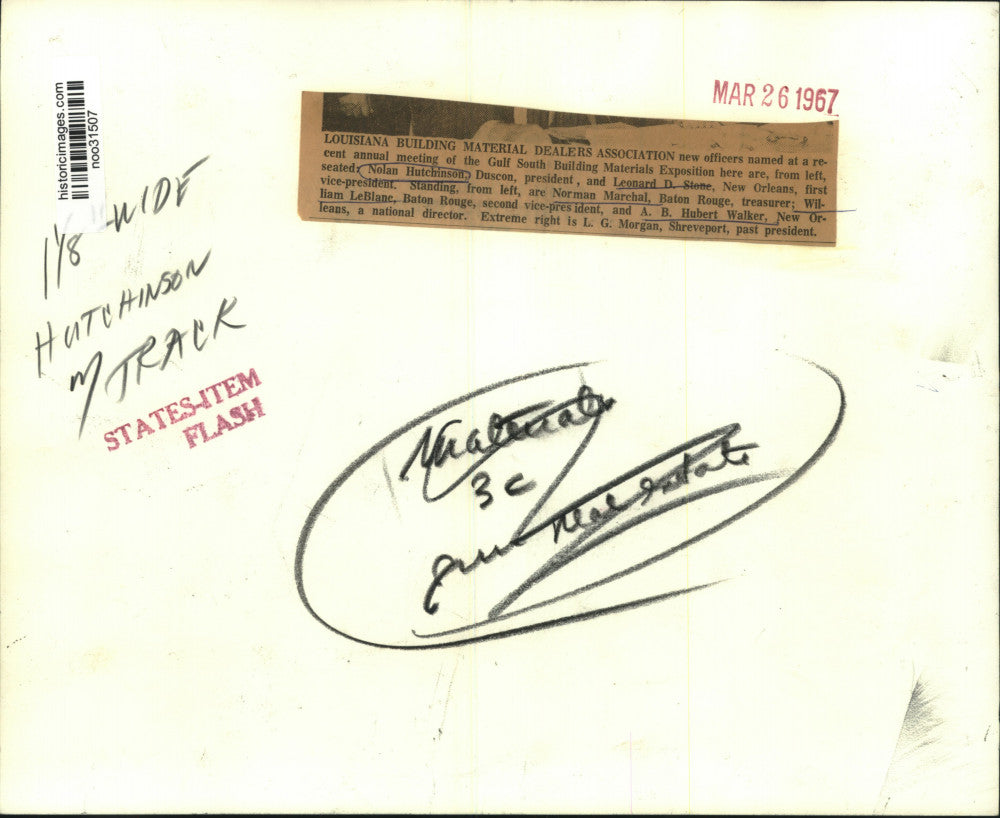 historicimages.com
noo31507
MAR 26 1967
LOUISIANA BUILDING MATERIAL DEALERS ASSOCIATION new officers named at a re-
cent annual meeting of the Gulf South Building Materials Exposition here are, from left,
seated: Nolan Hutchinson, Duscon, president, and Leonard D. Stone, New Orleans, first
vice-president. Standing, from left, are Norman Marchal, Baton Rouge, treasurer; Wil-
liam LeBlanc, Baton Rouge, second vice-president, and A. B. Hubert Walker, New Or-
leans, a national director. Extreme right is L. G. Morgan, Shreveport, past president.
1 1/8" WIDE
HUTCHINSON
M TRACK
STATES-ITEM
FLASH
Materials
3 c
Real Estate